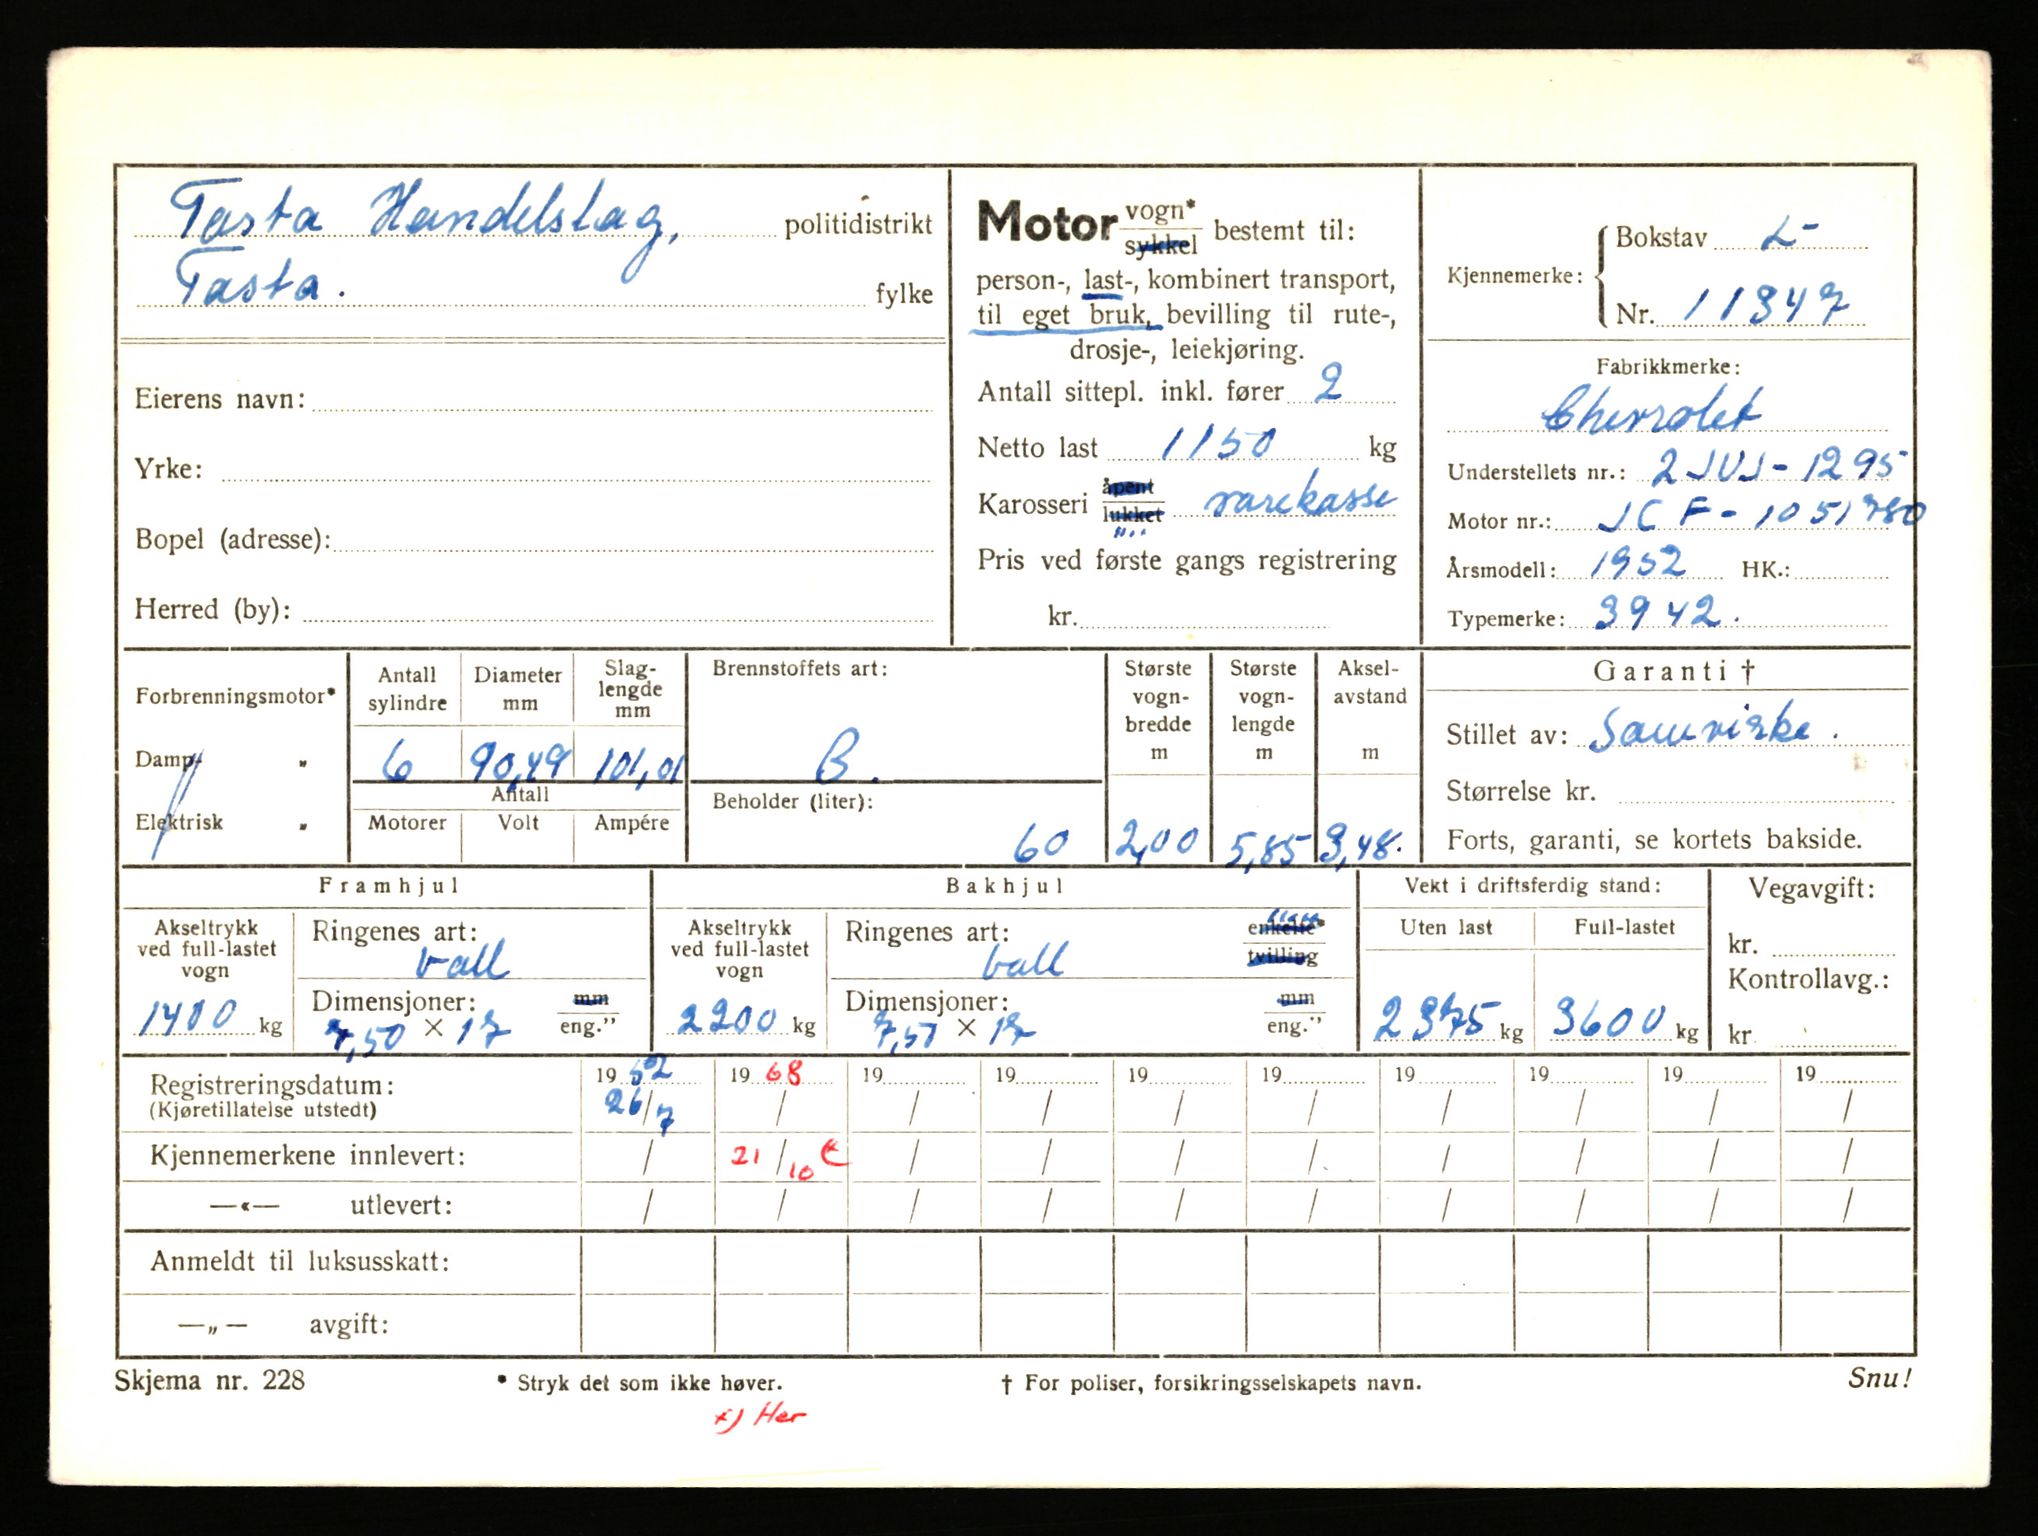 Tasta Handelslag, politidistrikt
Tasta. fylke
Eierens navn:
Yrke:
Bopel (adresse):
Herred (by):
Motor vogn* sykkel bestemt til:
person-, last-, kombinert transport,
til eget bruk, bevilling til rute-,
drosje-, leiekjøring.
Antall sittepl. inkl. fører 2
Netto last 1150 kg
Karosseri åpent lukket varekasse
Pris ved første gangs registrering
kr.
Kjennemerke: Bokstav L-
Nr. 11347
Fabrikkmerke:
Chevrolet
Understellets nr.: 2 JUJ - 1295
Motor nr.: JCF - 1051780
Årsmodell: 1952 HK.:
Typemerke: 3942.
Forbrenningsmotor*
Damp- „
Elektrisk „
Antall sylindre
6
Diameter mm
90,49
Slag-
lengde
mm
101,01
Antall
Motorer Volt Ampére
Brennstoffets art:
B.
Beholder (liter):
60
Største
vogn-
bredde
m
2,00
Største
vogn-
lengde
m
5,85
Aksel-
avstand
m
3,48.
Garanti †
Stillet av: Samvirke.
Størrelse kr.
Forts, garanti, se kortets bakside.
Framhjul
Akseltrykk
ved full-lastet
vogn
1400 kg
Ringenes art:
ball
Dimensjoner: mm
7,50 × 17 eng.”
Bakhjul
Akseltrykk
ved full-lastet
vogn
2200 kg
Ringenes art: enkelte*
ball tvilling
Dimensjoner: mm
7,50 × 17 eng.”
Vekt i driftsferdig stand:
Uten last
2375 kg
Full-lastet
3600 kg
Vegavgift:
kr.
Kontrollavg.:
kr
Registreringsdatum: 1952 1968 19 19 19 19 19 19 19 19
(Kjøretillatelse utstedt) 26/7 / / / / / / / / /
Kjennemerkene innlevert: / 21/10 / / / / / / / /
—«— utlevert: / / / / / / / / / /
Anmeldt til luksusskatt:
—„— avgift:
Skjema nr. 228 * Stryk det som ikke høver. † For poliser, forsikringsselskapets navn. Snu!
x) Her